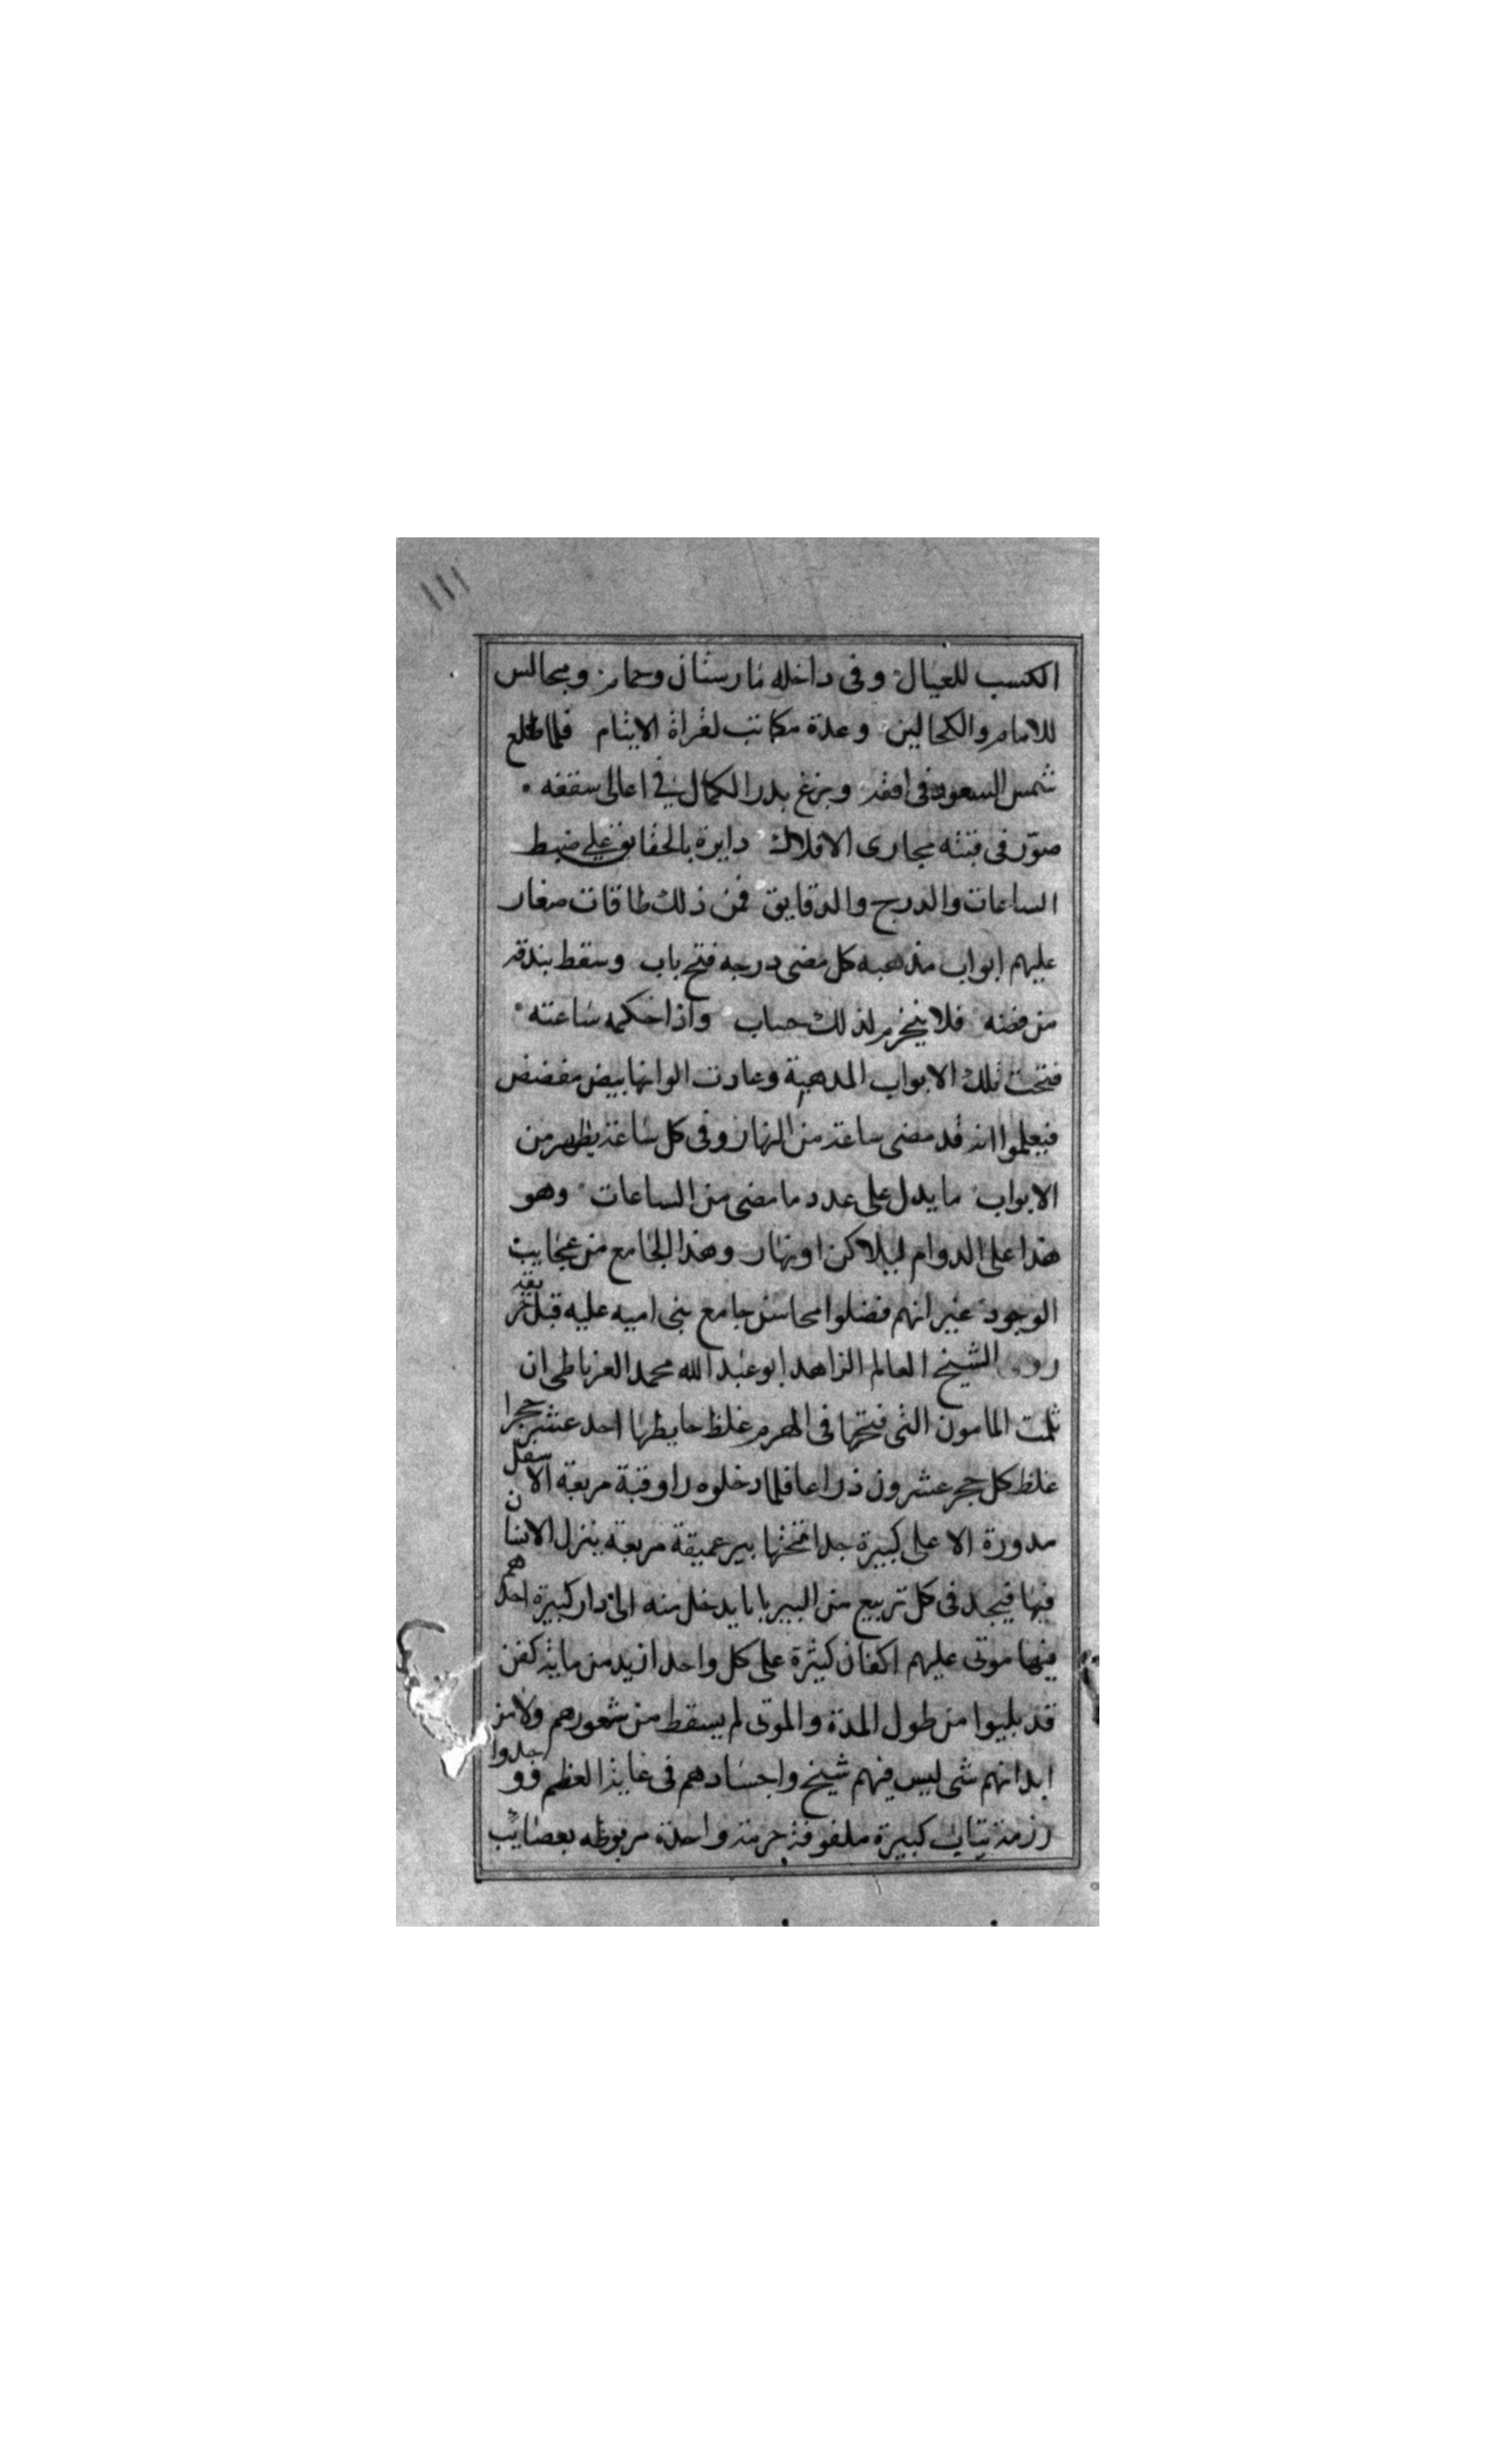 ١١١
الكسب للعيال وفى داخله مارستان وحمام ومجالس
للامام والكحالين وعدة مكاتب لقراة الايتام فلما طلع
شمس السعود فى افقه وبزغ بدر الكمال فى اعالى سقفه
صور فى قبته مجارى الافلاك دايرة بالحقايق على ضبط
الساعات والدرج والدقايق فمن ذلك طاقات صغار
عليهم ابواب مذهبه كل مضى درجه فتح باب وسقط بندقه
من فضه فلا ينخرم لذلك حساب واذا حكمه ساعته
فتحت تلك الابواب المدهبة وعادت الوانها بيض مفضض
فيعلموا انه قد مضى ساعة من النهار وفى كل ساعة يظهر من
الابواب ما يدل على عدد ما مضى من الساعات وهو
هذا على الدوام ليلا كن او نهار وهذا الجامع من عجايب
الوجود غير انهم فضلوا محاسن جامع بنى اميه عليه قبل
روى الشيخ العالم الزاهد ابو عبد الله محمد الغرناطى ان
ثلمت المامون التى فتحها فى الهرم غلظ حايطها احد عشر حجرا
غلظ كل حجر عشرون ذراعا فلما دخلوه راو قبة مربعة الاسفل
مدورة الاعلى كبيرة جدا تحتها بير عميقة مربعه ينزل الانسان
فيها فيجد فى كل تربيع من البير بابا يدخل منه الى دار كبيرة احدهم
فيها موتى عليهم اكفان كثيرة على كل واحد ازيد من ماية كفن
قد بليوا من طول المدة والموتى لم يسقط من شعورهم ولا من
ابدانهم شى ليس فيهم شيخ واجسادهم فى غاية العظم ووجدوا
رزمة ثياب كبيرة ملفوفة حزمة واحدة مربوطه بعصايب